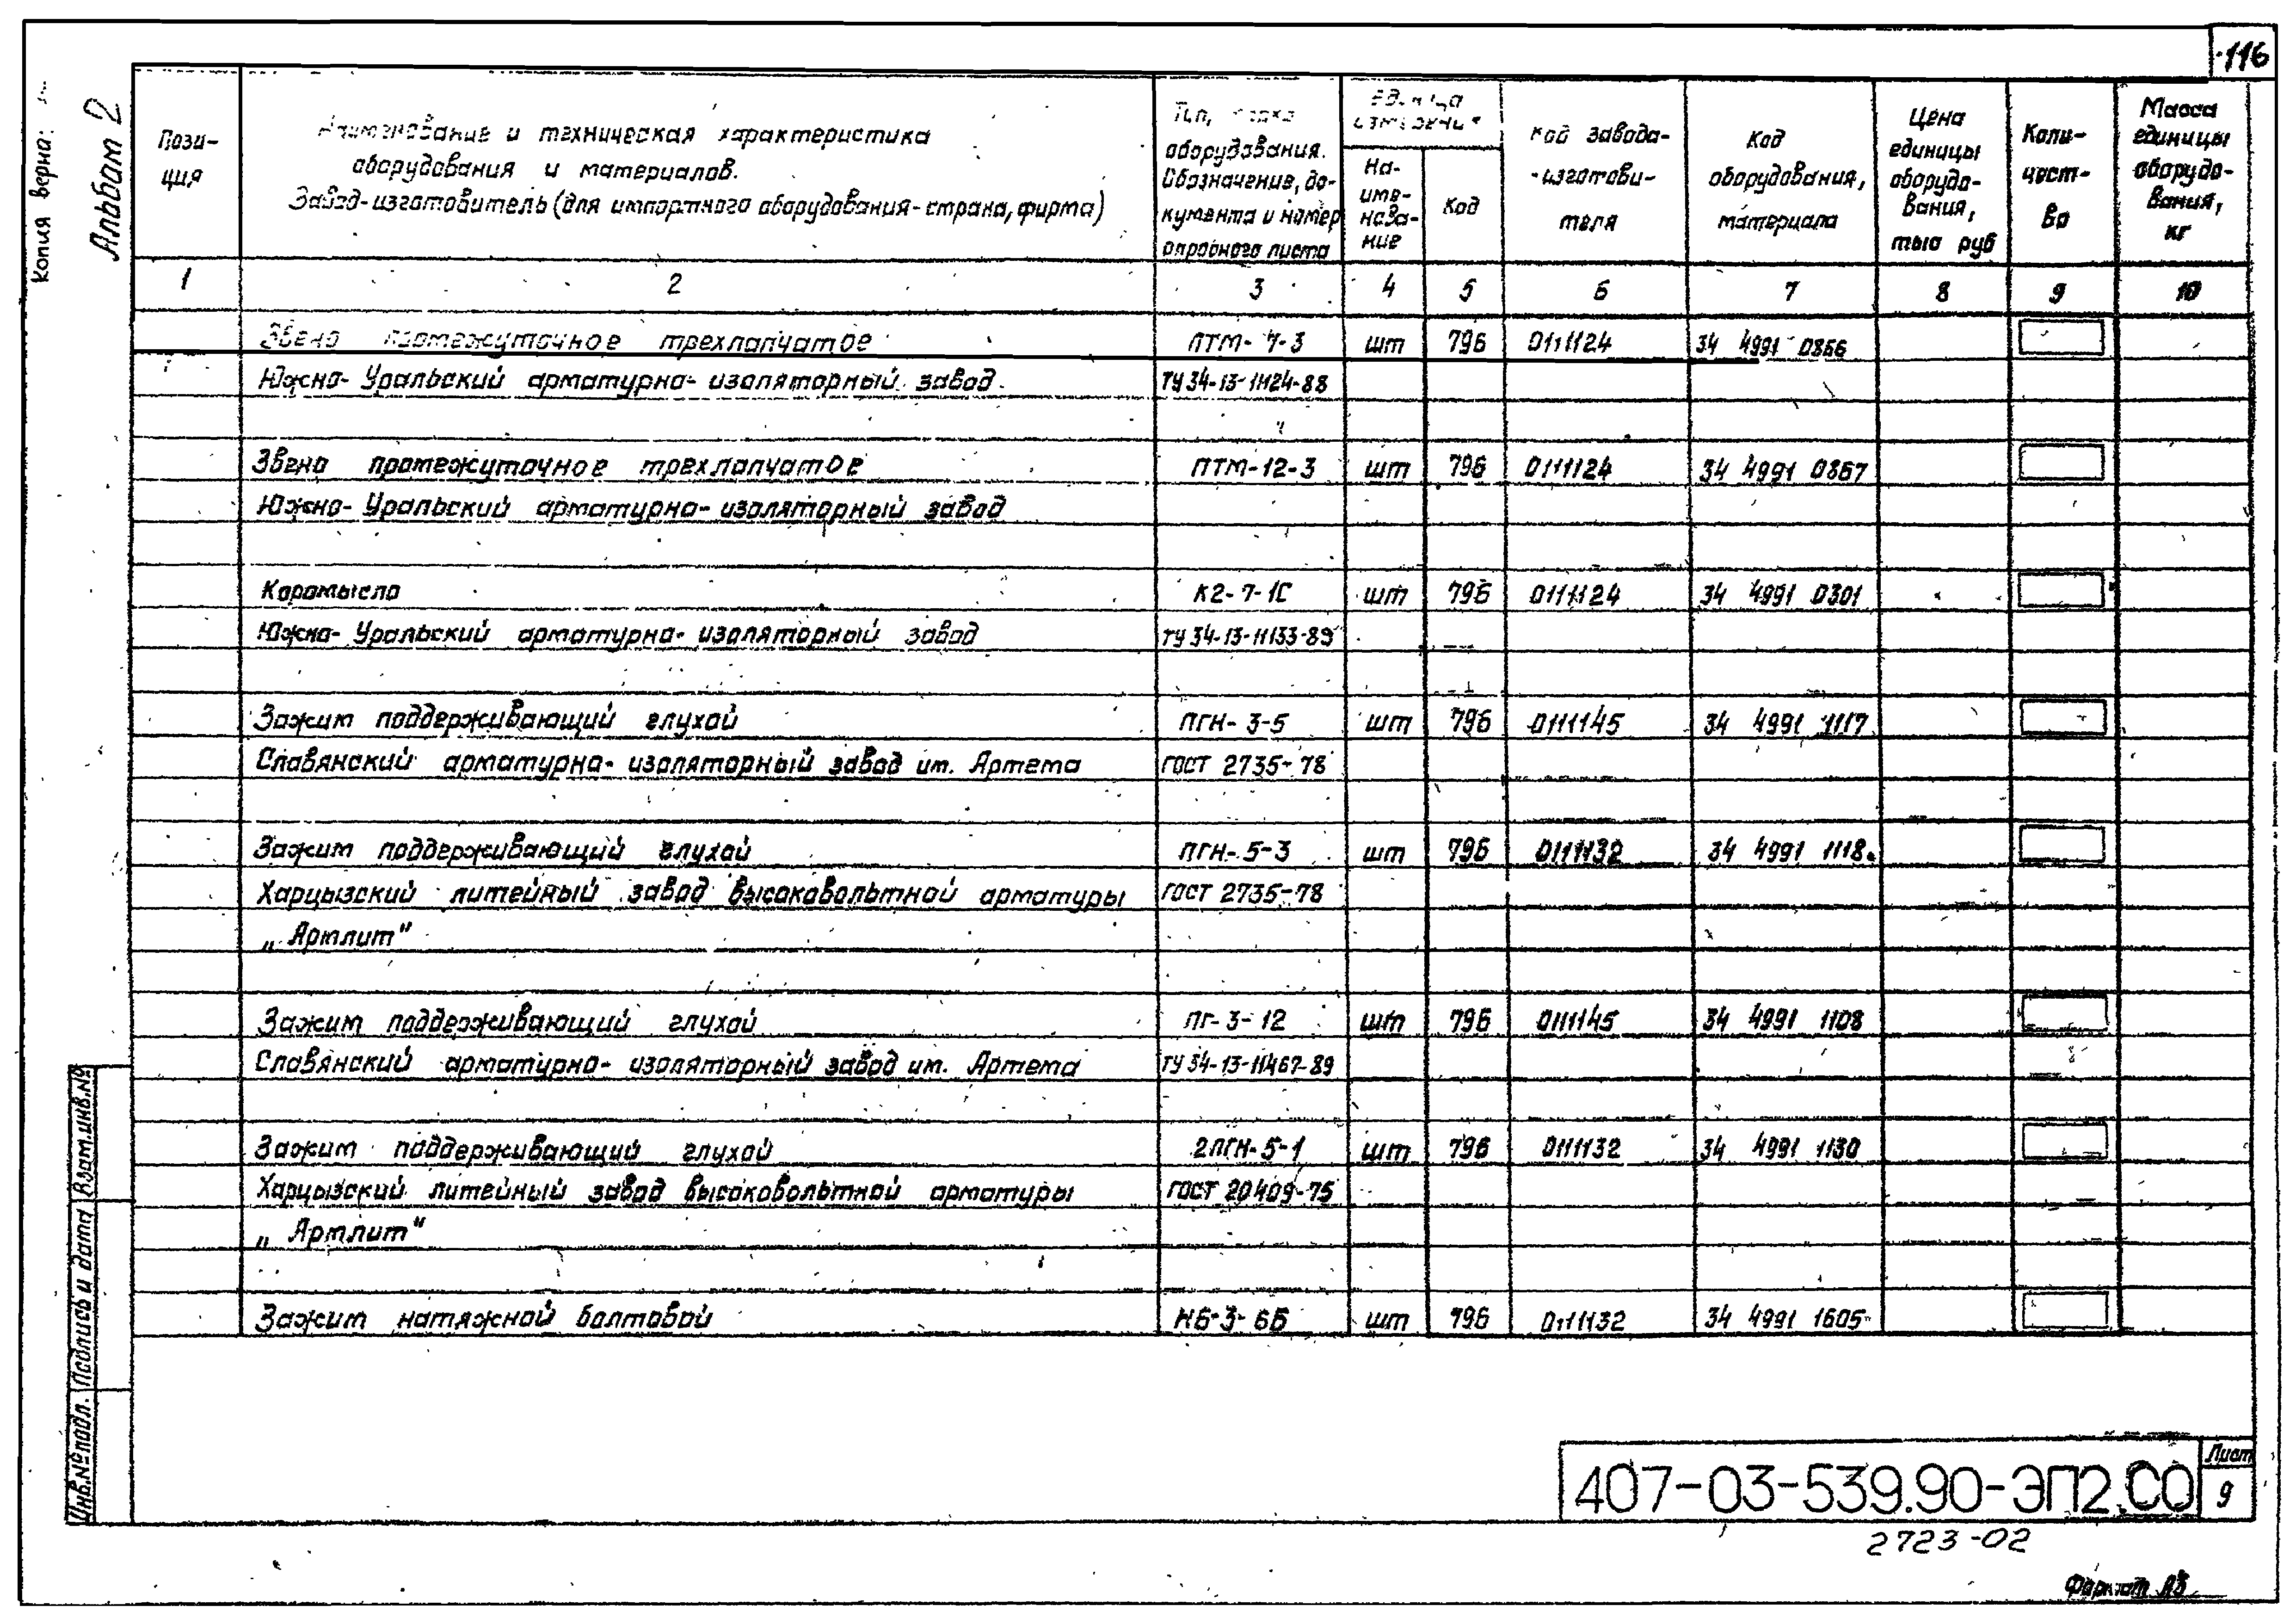 116
Копия верна:
Альбом 2
Пози-
ция
Наименование и техническая характеристика
оборудования и материалов.
Завод-изготовитель (для импортного оборудования-страна, фирма)
Тип, марка
оборудования.
Обозначение, до-
кумента и номер
опросного листа
Единица
измерения
На-
име-
нова-
ние
Код
Код завода-
-изготови-
теля
Код
оборудования,
материала
Цена
единицы
оборудо-
вания,
тыс руб
Коли-
чест-
во
Масса
единицы
оборудо-
вания,
кг
1 2 3 4 5 6 7 8 9 10
Звено промежуточное трехлапчатое ПТМ-7-3 шт 796 0111124 34 4991 0866
Южно-Уральский арматурно-изоляторный завод ТУ 34-13-11124-88
Звено промежуточное трехлапчатое ПТМ-12-3 шт 796 0111124 34 4991 0867
Южно-Уральский арматурно-изоляторный завод
Коромысло К2-7-1С шт 796 0111124 34 4991 0301
Южно-Уральский арматурно-изоляторный завод ТУ 34-13-11133-89
Зажим поддерживающий глухой ПГН-3-5 шт 796 0111145 34 4991 1117
Славянский арматурно-изоляторный завод им. Артема ГОСТ 2735-78
Зажим поддерживающий глухой ПГН-5-3 шт 796 0111132 34 4991 1118
Харцызский литейный завод высоковольтной арматуры ГОСТ 2735-78
„Армлит"
Зажим поддерживающий глухой ПГ-3-12 шт 796 0111145 34 4991 1108
Славянский арматурно-изоляторный завод им. Артема ТУ 34-13-11467-89
Зажим поддерживающий глухой 2ПГН-5-1 шт 796 0111132 34 4991 1130
Харцызский литейный завод высоковольтной арматуры ГОСТ 20409-75
„Армлит"
Зажим натяжной болтовой НБ-3-6Б шт 796 0111132 34 4991 1605
Инв.№ подл. Подпись и дата Взам.инв.№
407-03-539.90-ЭП2.СО
Лист
9
2723-02
Формат А3